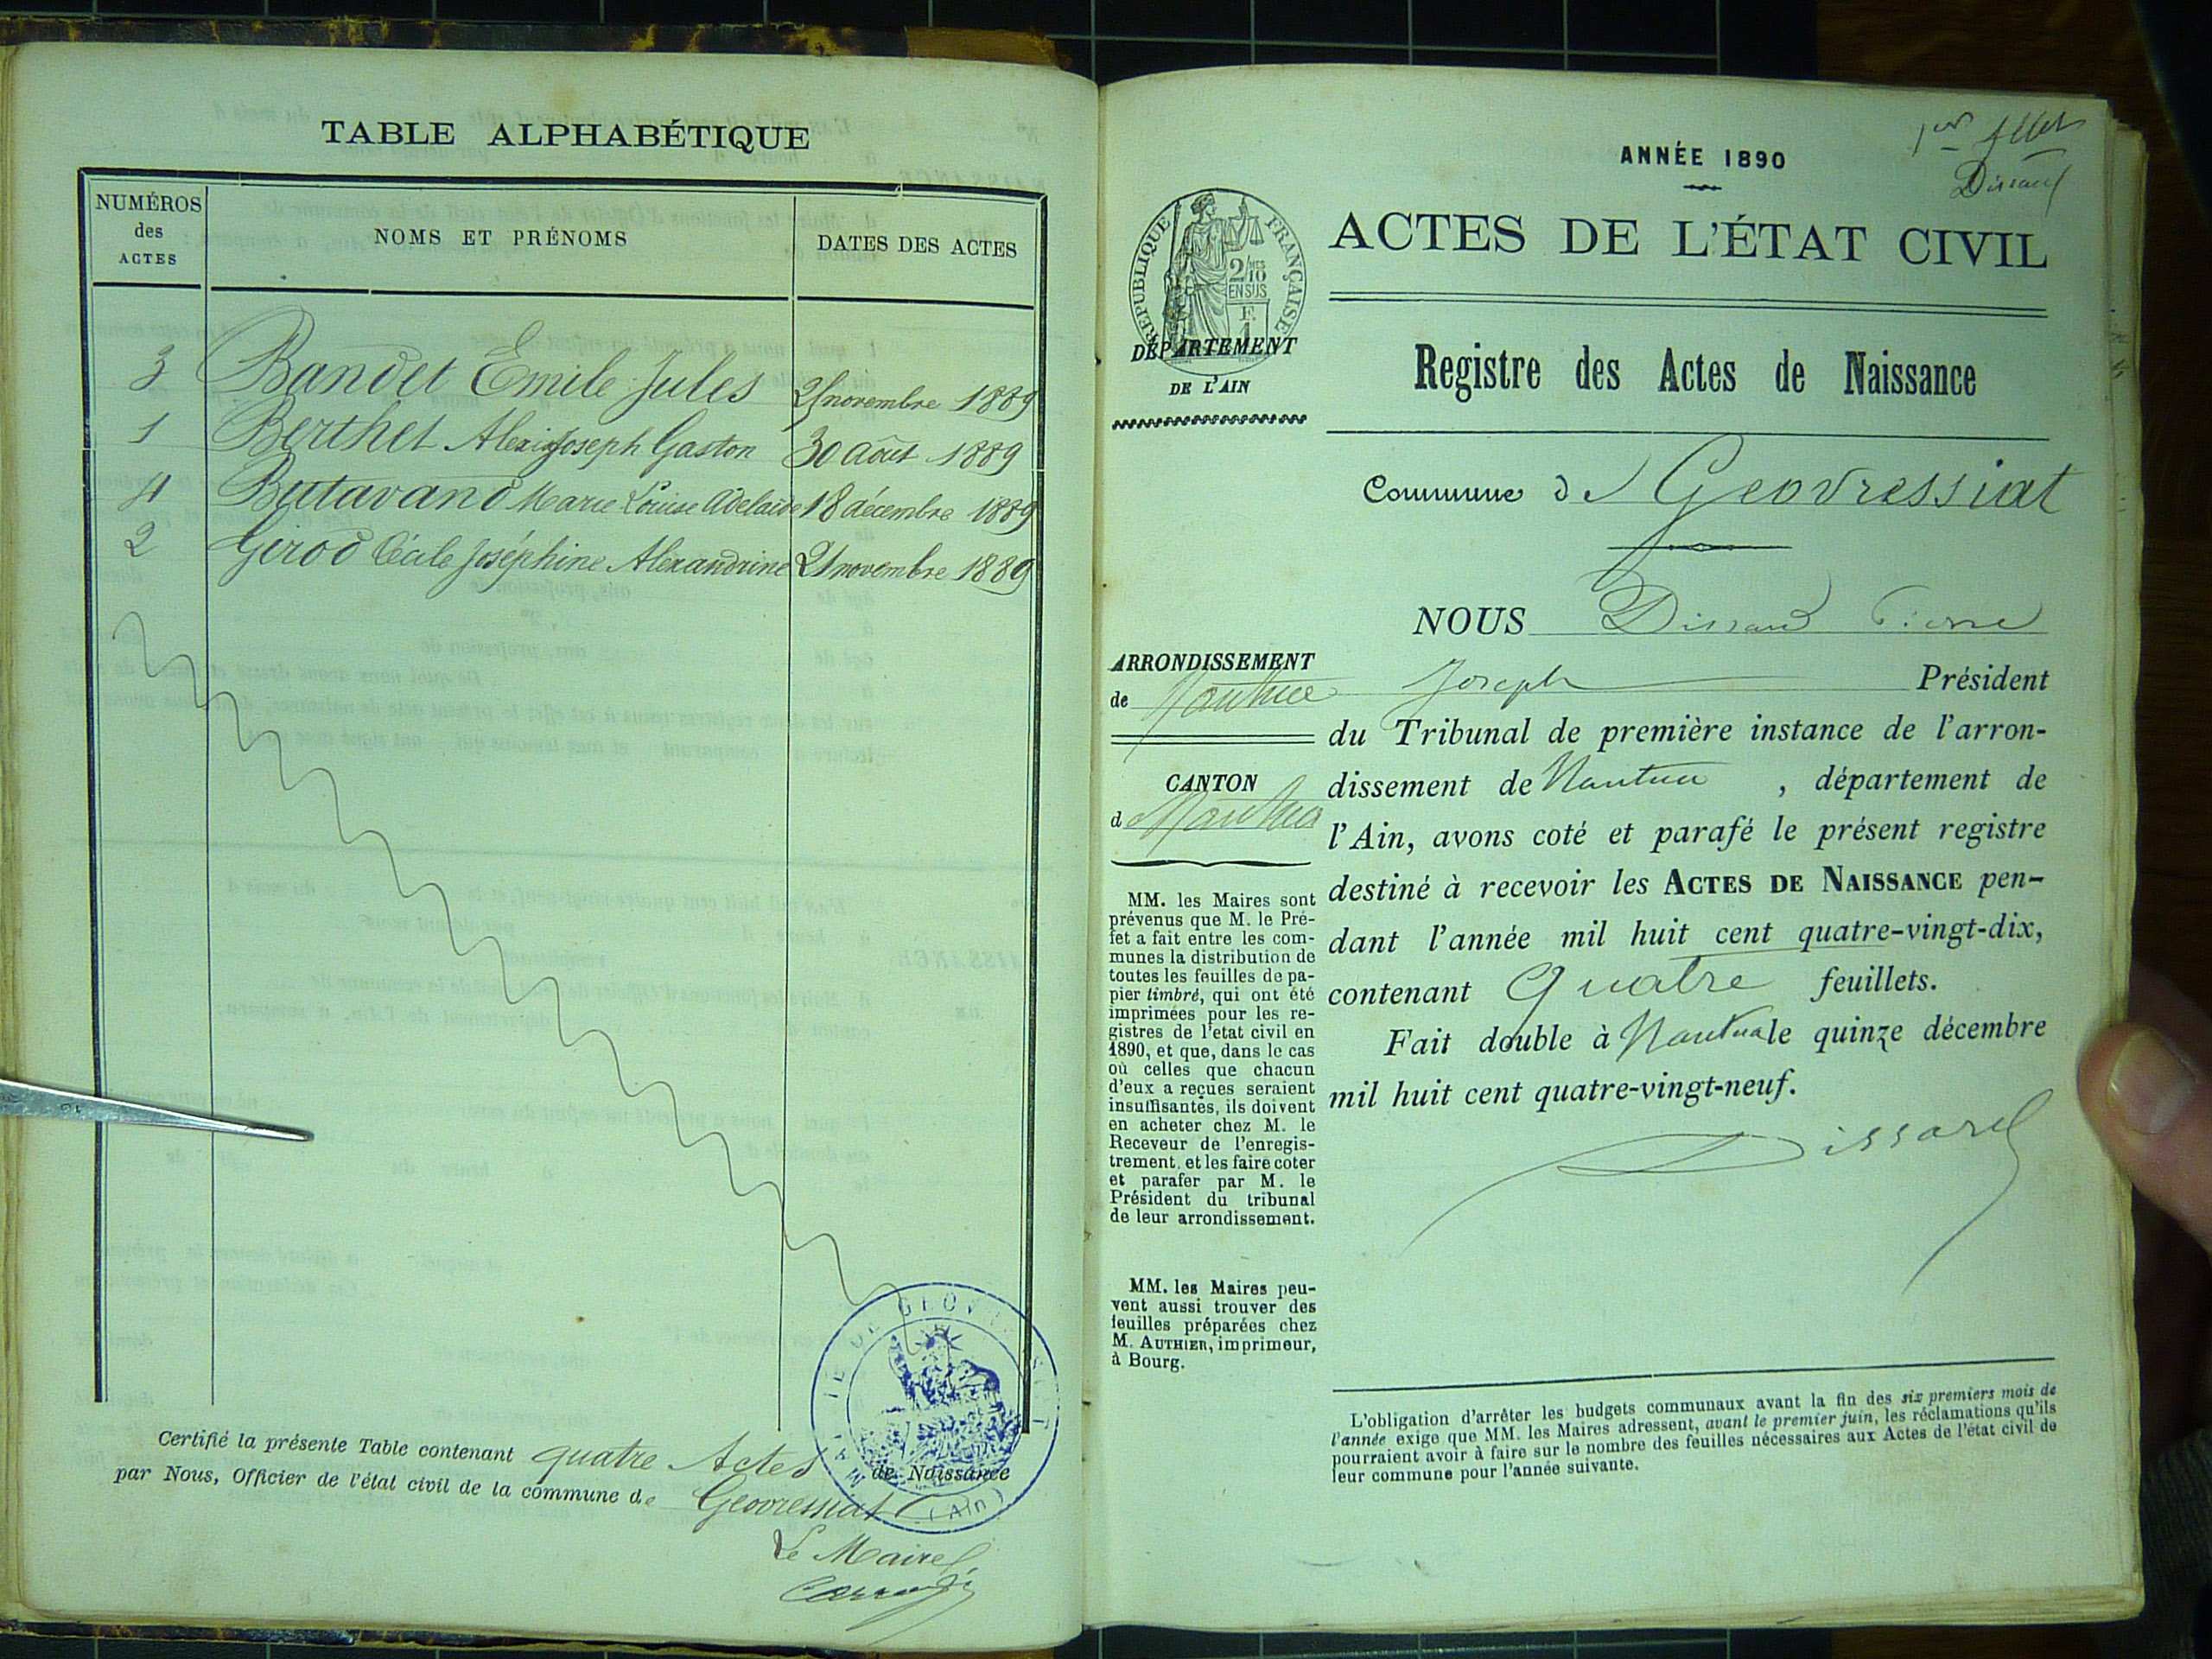 TABLE ALPHABÉTIQUE
NUMÉROS
des
ACTES
NOMS ET PRÉNOMS
DATES DES ACTES
3 Bandet Emile Jules novembre 1889
1 Berthet Alexis Joseph Gaston 30 août 1889
4 Butavand Marie Louise Adelaïde 18 décembre 1889
2 Girod Cécile Joséphine Alexandrine 21 novembre 1889
Certifié la présente Table contenant quatre Actes de Naissance
par Nous, Officier de l'état civil de la commune de Geovressiat
Le Maire
(Ain)
1er
Dissard
ANNÉE 1890
ACTES DE L'ÉTAT CIVIL
RÉPUBLIQUE FRANÇAISE
2/10
EN SUS
F.
1
DÉPARTEMENT
DE L'AIN
Registre des Actes de Naissance
Commune de Geovressiat
NOUS Dissard Pierre
Joseph Président
du Tribunal de première instance de l'arron-
dissement de Nantua , département de
l'Ain, avons coté et parafé le présent registre
destiné à recevoir les ACTES DE NAISSANCE pen-
dant l'année mil huit cent quatre-vingt-dix,
contenant Quatre feuillets.
Fait double à Nantua le quinze décembre
mil huit cent quatre-vingt-neuf.
Dissard
ARRONDISSEMENT
de Nantua
CANTON
d Nantua
MM. les Maires sont
prévenus que M. le Pré-
fet a fait entre les com-
munes la distribution de
toutes les feuilles de pa-
pier timbré, qui ont été
imprimées pour les re-
gistres de l'etat civil en
1890, et que, dans le cas
où celles que chacun
d'eux a reçues seraient
insuffisantes, ils doivent
en acheter chez M. le
Receveur de l'enregis-
trement, et les faire coter
et parafer par M. le
Président du tribunal
de leur arrondissement.
MM. les Maires peu-
vent aussi trouver des
feuilles préparées chez
M. AUTHIER, imprimeur,
à Bourg.
L'obligation d'arrêter les budgets communaux avant la fin des six premiers mois de
l'année exige que MM. les Maires adressent, avant le premier juin, les réclamations qu'ils
pourraient avoir à faire sur le nombre des feuilles nécessaires aux Actes de l'état civil de
leur commune pour l'année suivante.